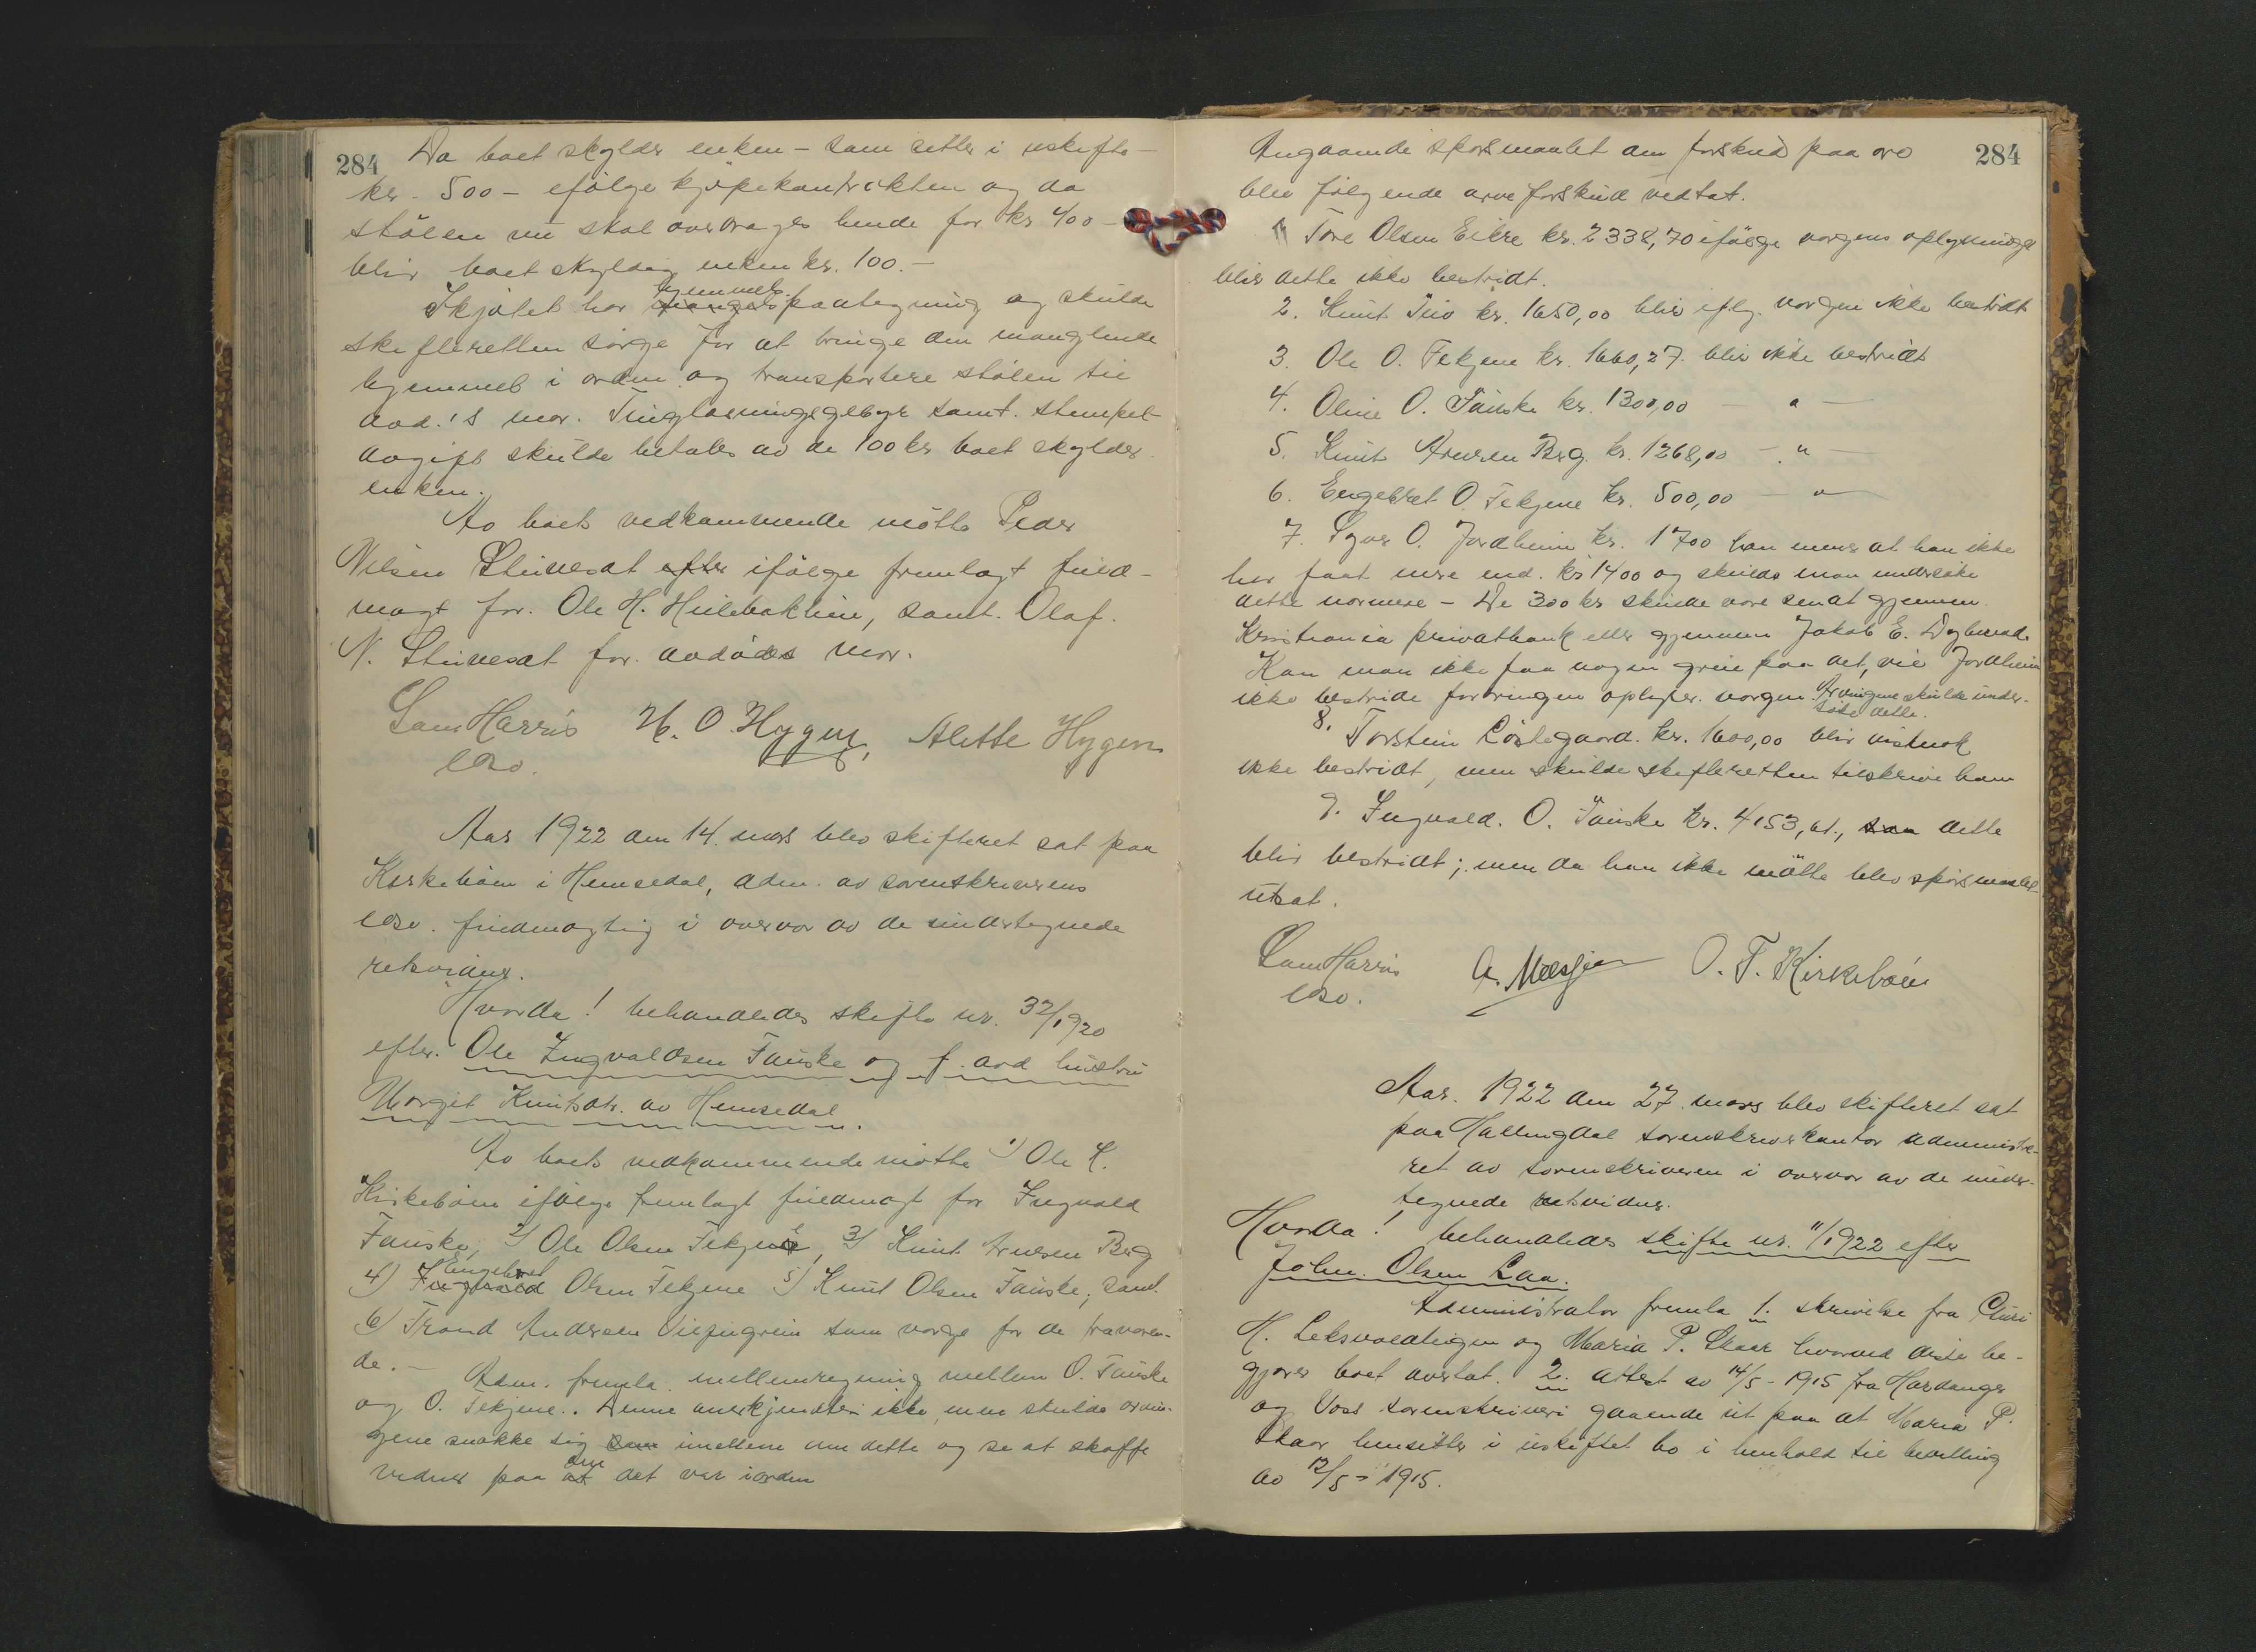 284
Da boet skylder enken - som sitter i uskifte -
kr. 500 - ifølge kjøpekontrakten og da
stølen nu skal overdrages hende for kr 400 -
blir boet skyldig enken kr. 100. -
hjemmels
Skjøtet har mangels paategning og skulde
skifteretten sørge for at bringe den manglende
hjemmel i orden og transportere stølen til
avd.'s mor. Tinglæsningsgebyr samt. stempel-
avgift skulde betales av de 100 kr boet skylder
enken.
Av boets vedkommende møtte Peder
Nilsen efter ifølge fremlagt fuld-
magt for. Ole H. Hulebakhin, samt. Olaf.
N. for. avdødes mor.
Sam Harris H. O. Hygen, Alette Hygen
edsv.
Aar 1922 den 14. mars blev skifteret sat paa
Kirkebøen i Hemsedal, adm. av sorenskriverens
edsv. fuldmægtig i overvær av de undertegnede
retsvidner.
Hvorda! behandledes skifte nr. 32/1920
efter. Ole Ingvaldsen Fauske og f. avd hustru
Margit Knutsdtr. av Hemsedal.
Av boets vedkommende møtte 1) Ole K.
Kirkebøen ifølge fremlagt fuldmagt for Ingvald
Fauske, 2) Ole Olsen Fekjene, 3) Knut Arnesen Berg
Engebret
4) Ingvald Olsen Fekjene 5) Knut Olsen Fauske, samt
6) Trond Andersen som verge for de fraværen-
de. -
Adm. fremla mellemregning mellem O. Fauske
og O. Fekjene. Denne anerkjendtes ikke, men skulde arvin-
gene snakke sig som imellem om dette og se at skaffe
den
vidner paa at det var iorden
284
Angaaende spørsmaalet om forskud paa arv
blev følgende arveforskud vedtat.
1) Tore Olsen Eikre kr. 2338,70 ifølge vergens oplysninger
blir dette ikke bestridt.
2. Knut kr. 1650,00 blir iflg. vergen ikke bestridt
3. Ole O. Fekjene kr. 1660,27. blir ikke bestridt
4. Oline O. Fauske kr. 1300,00 - " -
5. Knut Arnesen Berg kr. 1268,00 - " -
6. Engebret O. Fekjene kr. 500,00 - " -
7. Syver O. Jordheim kr. 1700 han mener at han ikke
har faat mere end. kr 1400 og skulde man undersøke
dette nærmere - De 300 kr skulde være sendt gjennem
Kristiania privatbank eller gjennem Jakob E.
Kan man ikke faa nogen greie paa det, vil Jordheim
ikke bestride fordringen oplyser. vergen. Arvingene skulde under-
søke dette.
8. Torstein Løstegaard. kr. 1600,00 blir vistnok
ikke bestridt, men skulde skifteretten tilskrive ham
9. Ingvald. O. Fauske kr. 4153,61., saa dette
blir bestridt; men da han ikke møtte blev spørsmaalet
utsat.
Sam Harris A. O. T. Kirkebøen
edsv.
Aar. 1922 den 27. mars blev skifteret sat
paa Hallingdal sorenskriverkontor administre-
ret av sorenskriveren i overvær av de under-
tegnede retsvidner.
Hvorda! behandledes skifte nr. 11/1922 efter
John. Olsen Laa.
Administrator fremla 1. skrivelse fra Guri
H. Leksvoldhigen og Maria P. Skaar hvorved disse be-
gjærer boet overtat. 2. attest av 14/5 - 1915 fra Hardanger
og Voss sorenskriveri gaaende ut paa at Maria P.
Skaar hensitter i uskiftet bo i henhold til bevilling
av 12/5 - 1915.